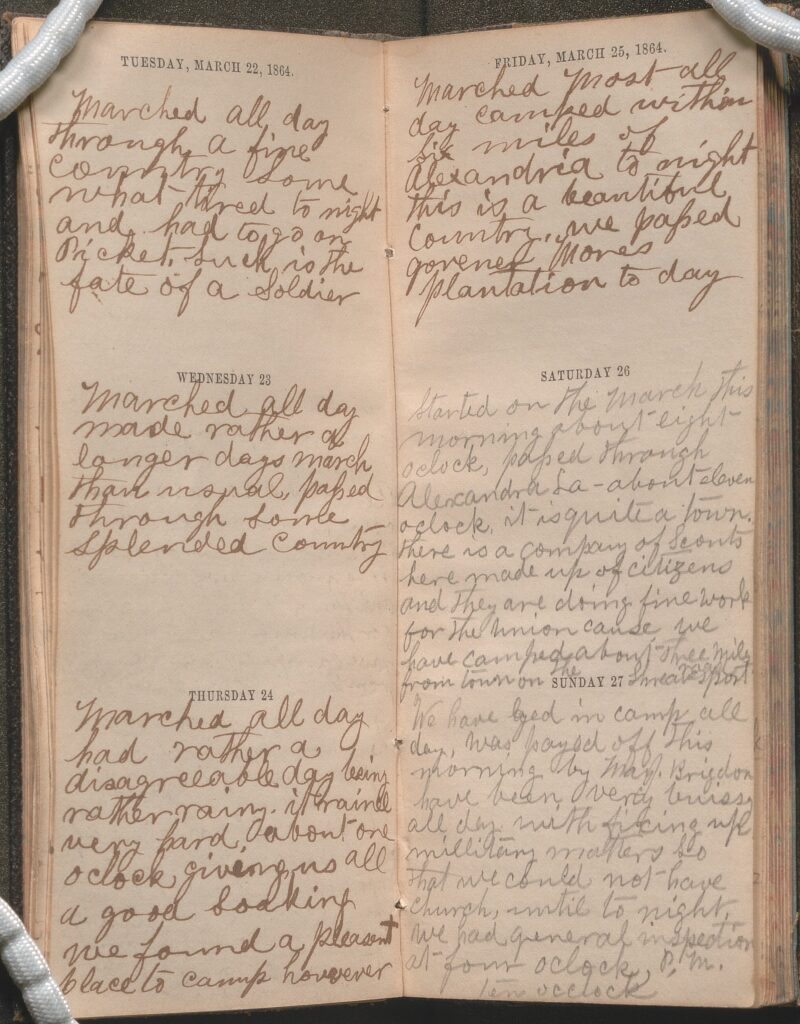 TUESDAY, MARCH 22, 1864.
Marched all day
through a fine
country some
what tired to night
and had to go on
Picket. Such is the
fate of a Soldier
WEDNESDAY 23
Marched all day
made rather a
longer days march
than usual, passed
through some
splended country
THURSDAY 24
Marched all day
had rather a
disagreeable day being
rather rainy. it rained
very hard, about one
oclock giveing us all
a good soaking
we found a pleasent
place to camp however
FRIDAY, MARCH 25, 1864.
Marched most all
day camped within
six miles of
Alexandria to night
this is a beautiful
Country, we passed
Moores
plantation to day
SATURDAY 26
Started on the March this
morning about eight
oclock, passed through
Alexandra La - about eleven
oclock, it is quite a town.
there is a company of Scouts
here made up of citizens
and they are doing fine work
for the Union cause we
have camped about three miles
from town on the road
SUNDAY 27
We have layed in camp all
day, was payed off this
morning by Maj.
have been very buissy
all day with fixing up
millitary matters so
that we could not have
church, until to night,
we had general inspection
at four oclock, P.M.
ten occlock